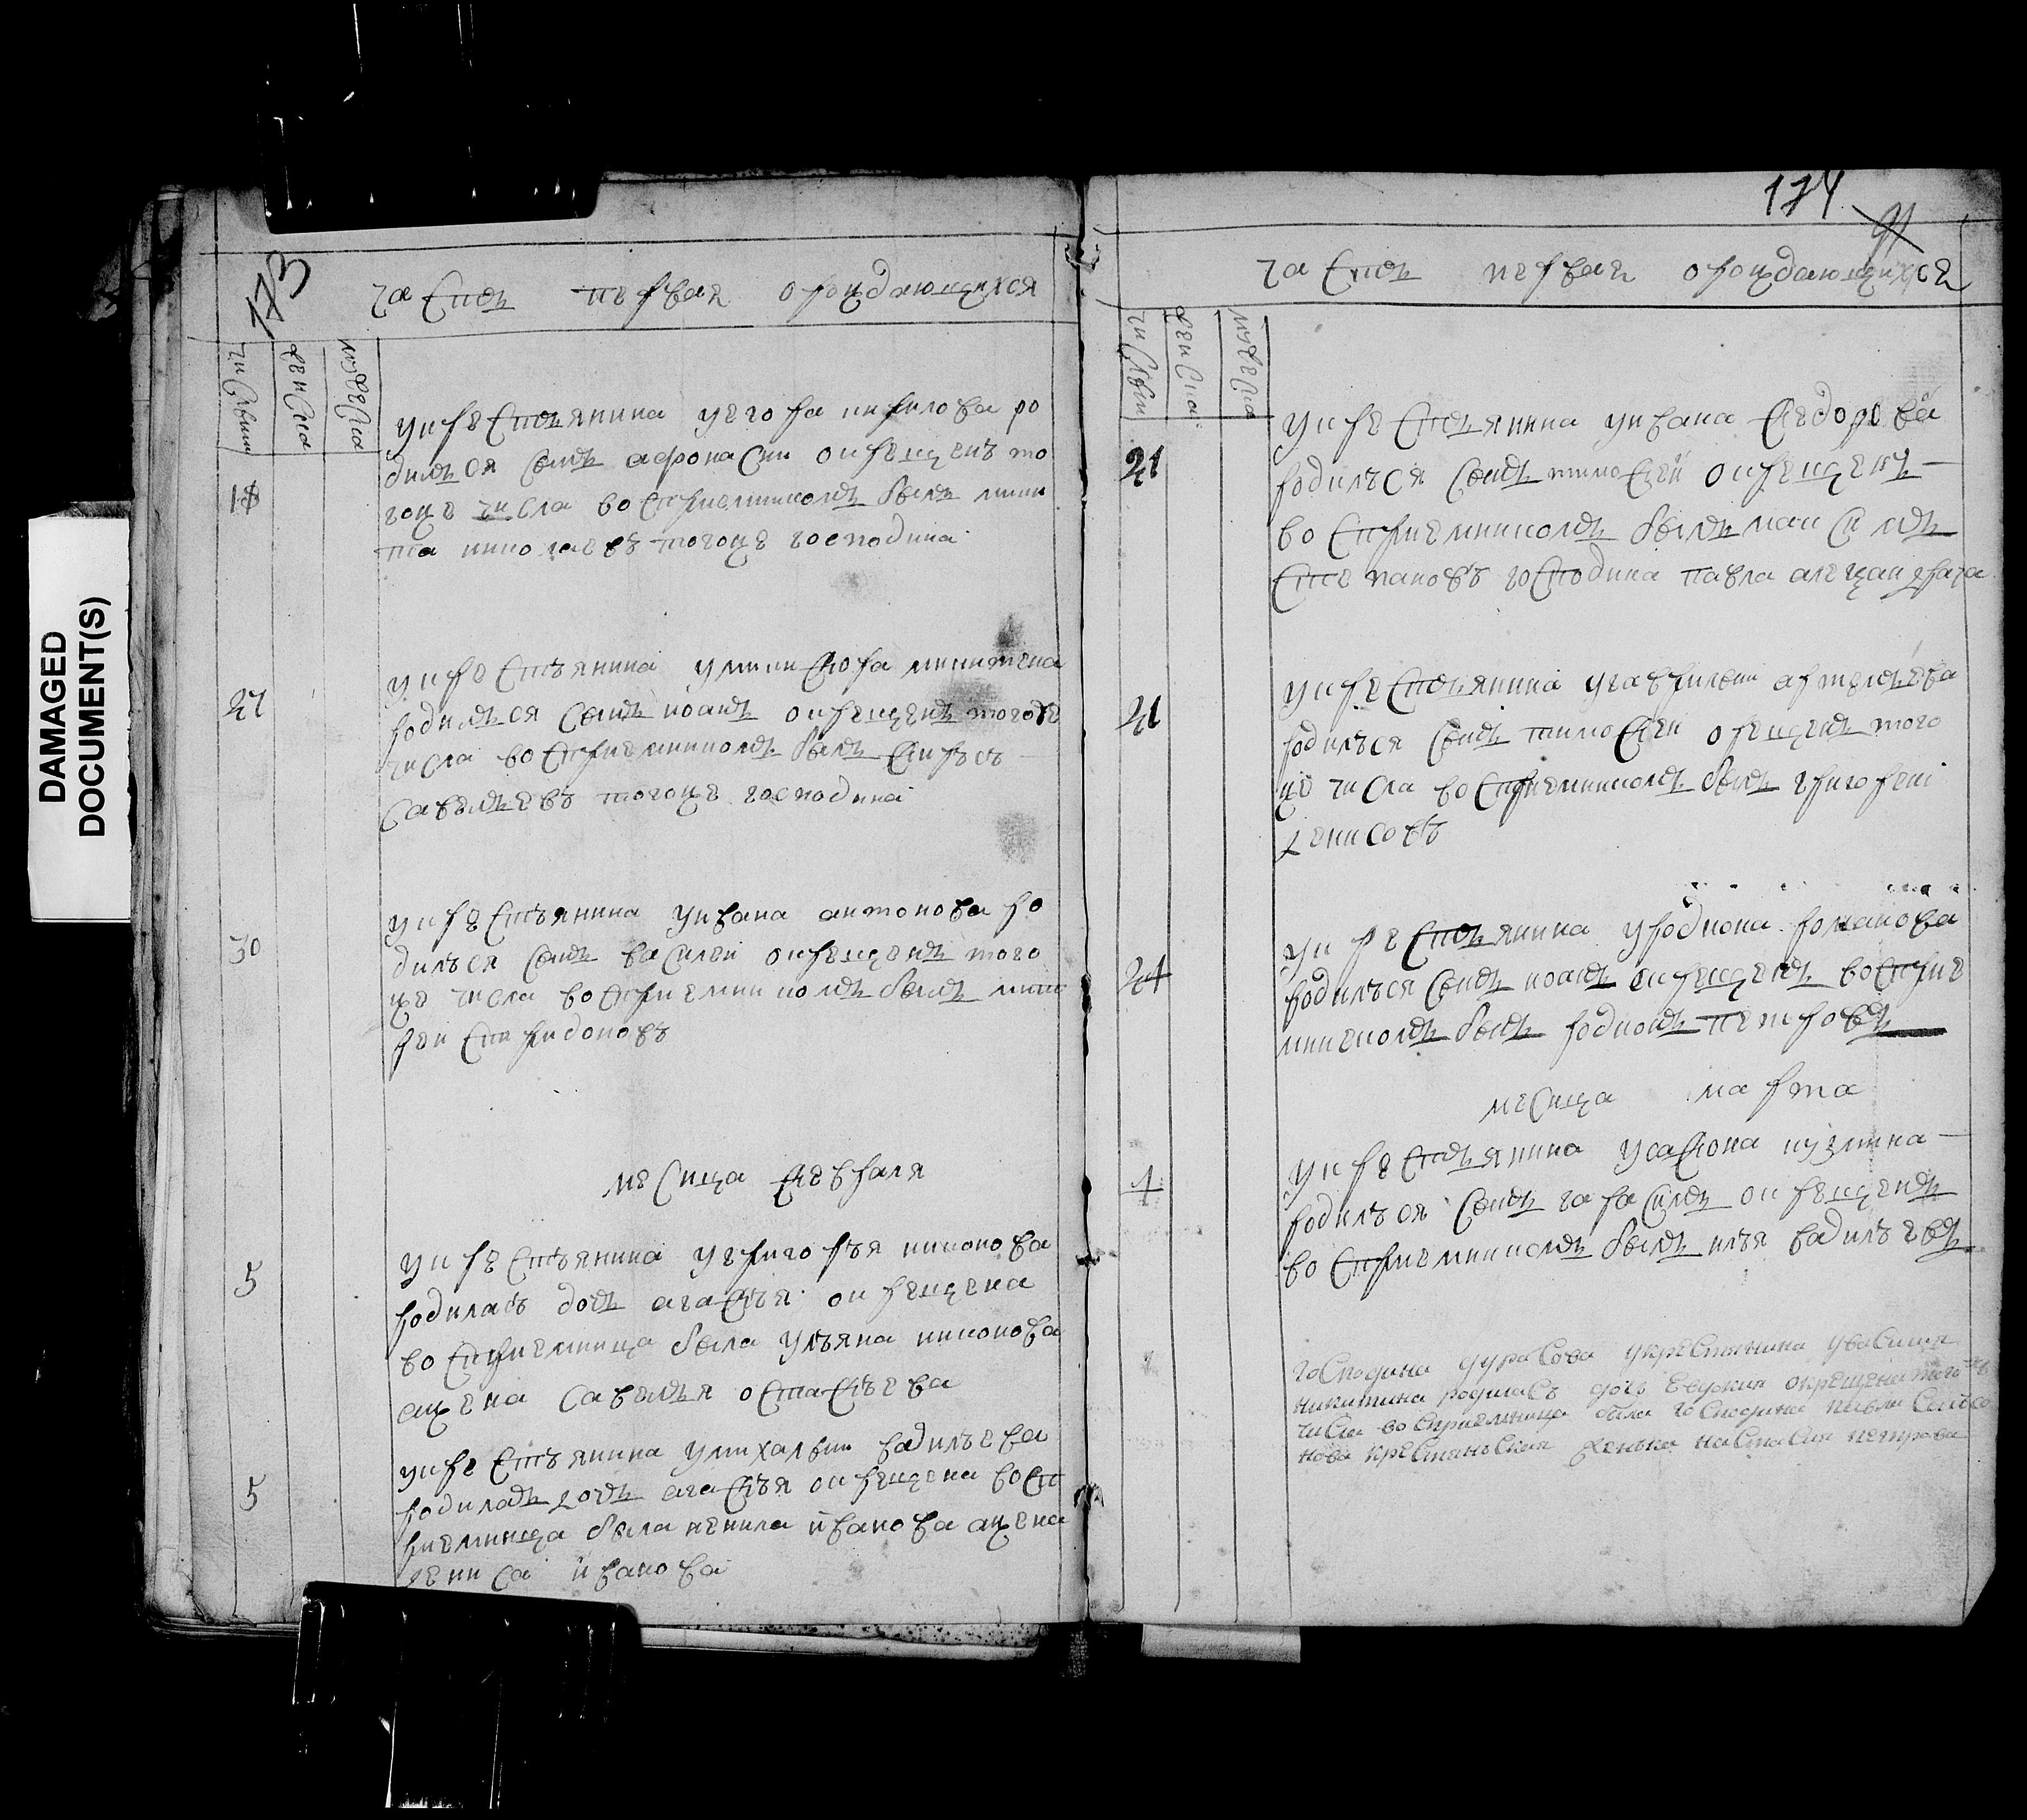 DAMAGED
DOCUMENT(S)
173
часть первая о рождающихся
числы
женска
мужеска
18
у крестьянина у егора кирилова ро
дился сынъ афонасии окрещенъ то
гоже числа восприемникомъ былъ ники
та николаевъ тогоже господина
27
у крестьянина у никифора никитена
родился сынъ иоанъ окрещенъ тогоже
числа восприемникомъ былъ
савельевъ тогоже господина
30
у крестьянина у ивана антонова ро
дился сынъ василеи окрещенъ того
же числа восприемникомъ былъ
спиридоновъ
месица февраля
5
у крестьянина у григорья никонова
родилась дочь агафья окрещена
восприемница была ульяна никонова
а жена савелья остафьева
5
у крестьянина у михальи вадильева
родилась дочь агафья окрещена восп
риемница была ненила иванова а жена
дениса иванова
174
91
часть первая о рождающихся
числы
женска
мужеска
21
у крестьянина у ивана федорова
родился сынъ тимофеи окрещенъ
восприемникомъ былъ максимъ
степановъ господина павла
21
у крестьянина у гаврилы артемьева
родился сынъ тимофеи окрещенъ того
же числа восприемникомъ былъ григореи
денисовъ
24
у крестьянина у родиона романова
родился сынъ иоанъ окрещенъ восприе
мникомъ былъ родионъ петровъ
месица марта
1
у крестьянина у сафона кузмина
родился сынъ гарасимъ окрещенъ
восприемникомъ былъ илья вадильевъ
господина дурасова у крестьянина у василья
никитина родилась дочь евдокия окрещена того ж
числа восприемница была господина павла
крестьянская женька настасия петрова